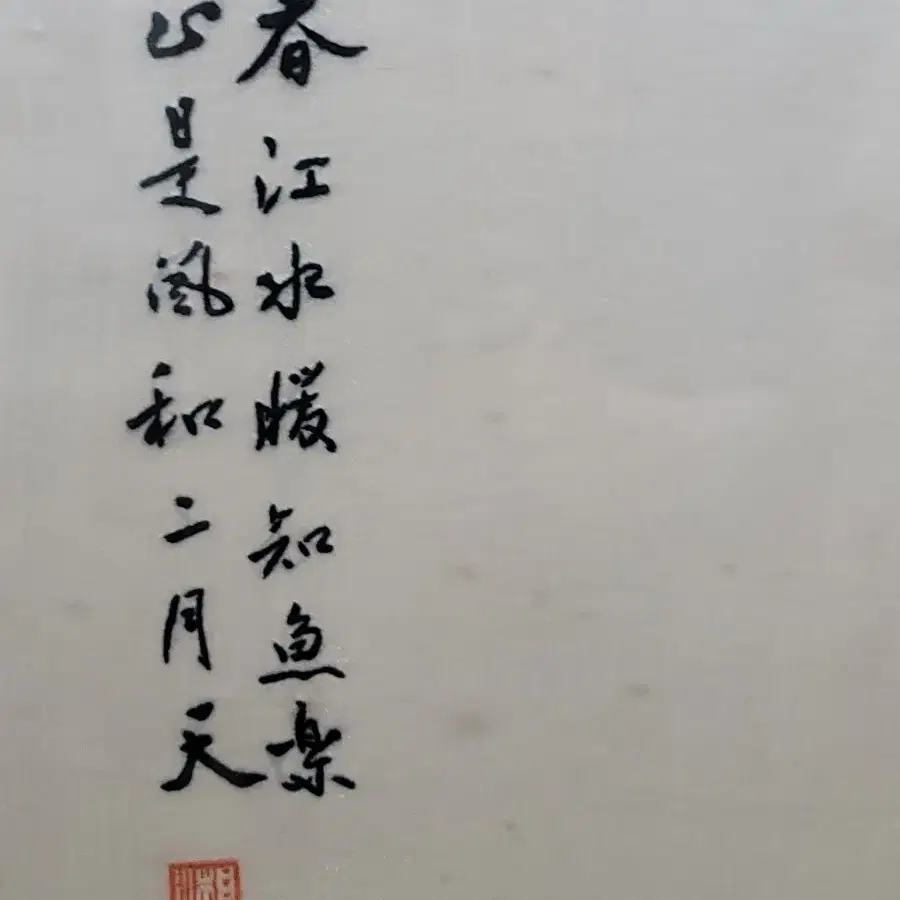 春江水暖知魚樂
正是風和二月天